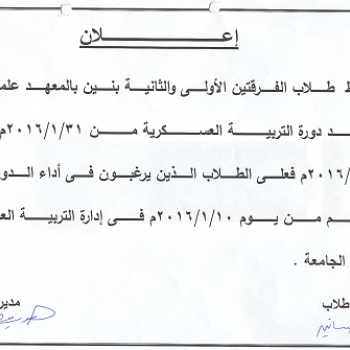 إعـــــــلان
ط طلاب الفرقتين الأولى والثانية بنين بالمعهد علم
ـد دورة التربية العسكرية من ٢٠١٦/١/٣١م
/٢٠١٦م فعلى الطلاب الذين يرغبون فى أداء الدو
ـم من يوم ٢٠١٦/١/١٠م فى إدارة التربية الع
الجامعة .
طلاب
مدير